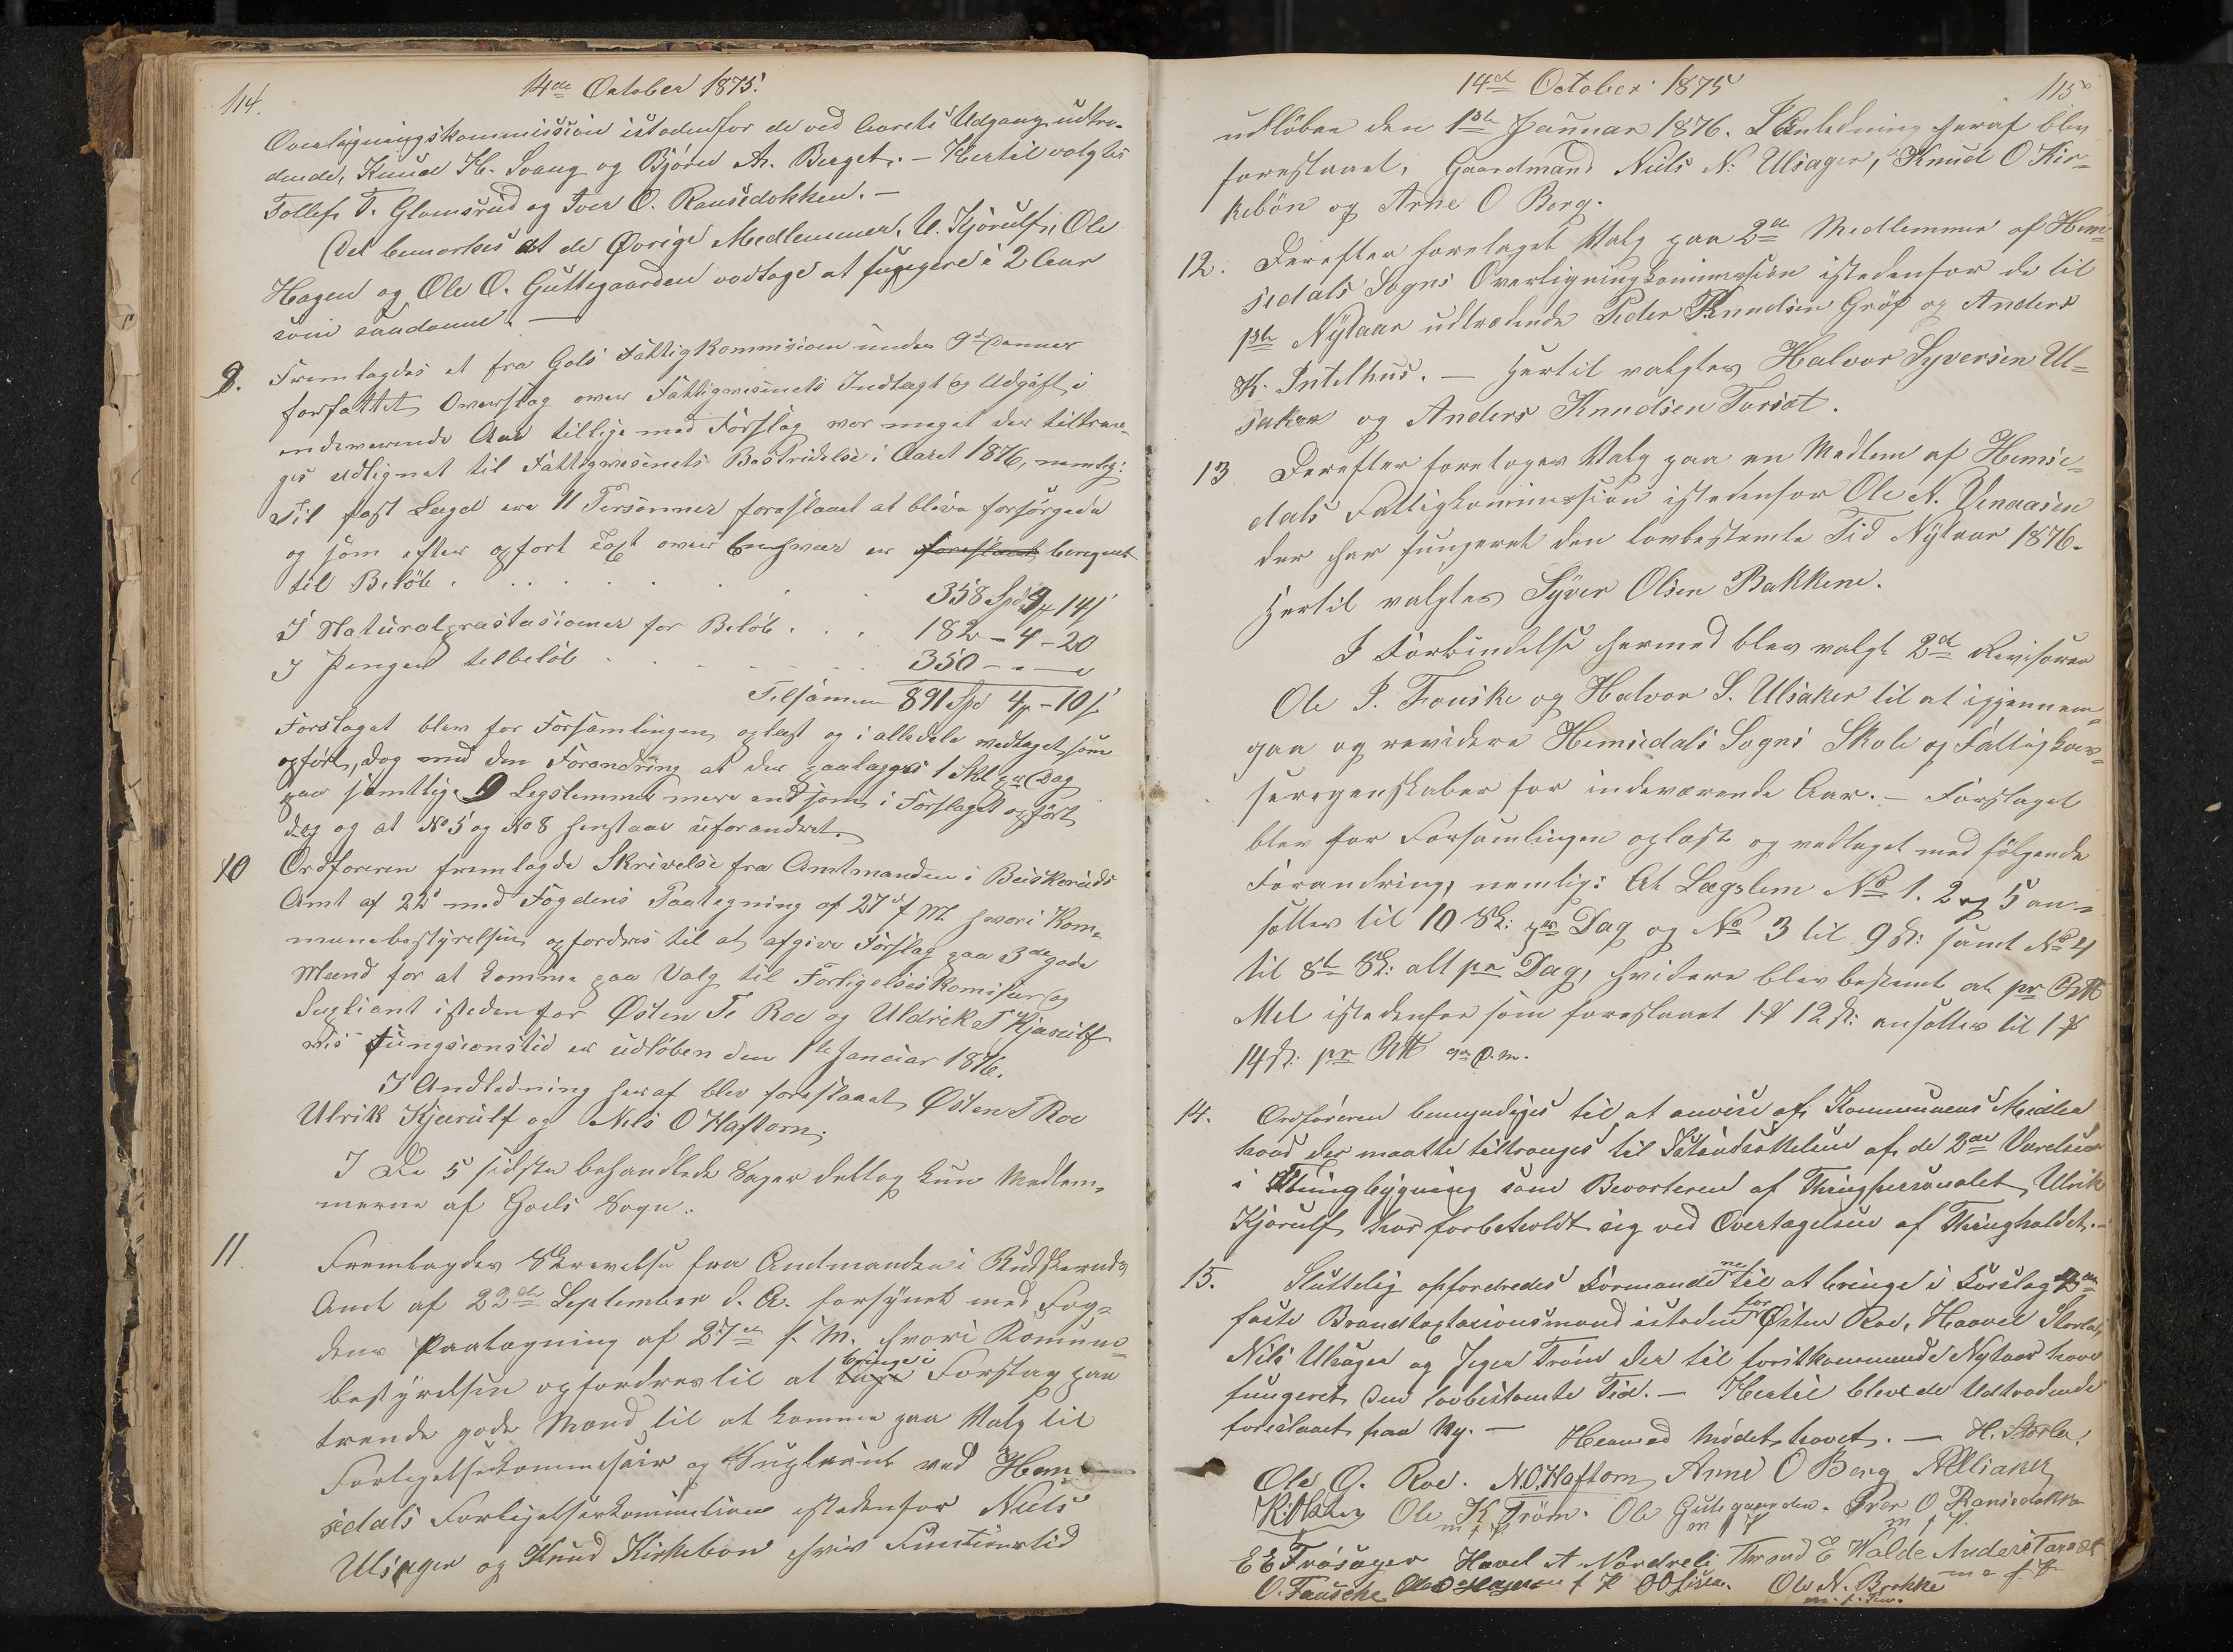 114.
14de October 1875.
Overligningskommission istedenfor de ved Aarets Udgang udtræ-
dende, Knud H. Svang og Bjørn A. Berget. — Hertil valgtes
Tollef T. Glomsrud og Iver O. Ransedokken. —
Det bemærkes at de Øvrige Medlemmer, U. Kjørulf, Ole
Hagen og Ole O. Guttegaarden vedtoge at fungere i 2 Aar
som saadanne. —
9. Fremlagdes et fra Gols Fattigkommission under 9de Dennes
forfattet Overslag over Fattigvæsenets Indtægt og Udgift i
indeværende Aar tillige med Forslag vor meget der tiltræn-
ges udlignet til Fattigvæsenets Bestridelse i Aaret 1876, nemlig:
Til fast Lægd ere 11 Personner foreslaaet at blive forsørgede
og som efter opført Kost over Enhver er foreslaaet beregnet
til Beløb . . . . . . 358 Spd 9 14 s
I Naturalpræstasioner for Beløb . . . 182 - 4 - 20
I Penger tilbeløb . . . . . . 350 - " - "
Tilsamen 891 Spd 4 - 10 s
Forslaget blev for Forsamlingen oplæst og i alle dele vedtaget som
opført, dog med den Forandring at der paalægges 1 Skl pr Dag
paa samtlige 9 Legslemmer mere end som i Forslaget opført
dog og at No 5 og No 8 henstaar uforandret.
10 Ordføreren fremlagde Skrivelse fra Amtmanden i Buskeruds
Amt af 22d med Fogdens Paategning af 27d f M hvori Kom-
munebestyrelsen opfordres til at afgive Forslag paa 3de gode
Mænd for at komme paa Valg til Forligelseskomisær og
Supliant isteden for Østen T. Roe og Uldrick T Kjærulf
vis fungsionstid er udløben den 1ste Januar 1876.
I Andledning heraf blev foreslaaet Østen T Roe
Ulrik Kjærulf og Nils O Haftorn.
I De 5 sidste behandlede Sager deltog kun Medlem-
merne af Goels Sogn.
11. Fremlagdes Skrevelse fra Amtmanden i Budskeruds
Amt af 22de September d. A. forsynet med Fog-
dens Paategning af 27de s. M. hvori Komune-
bestyrelsen opfordres til at tage bringe i Forslag paa
trende gode Mænd til at komme paa Valg til
Forligelseskommesair og Supleant ved Hem-
sedals Forligelseskommission istedenfor Niels
Ulsager og Knud Kirkebøn hvis Functionstid
14de October 1875
115
udløben den 1ste Januar 1876. I Anledning heraf blev
foreslaaet, Gaardmand Niels N. Ulsager, Knud O Kir-
kebøn og Arne O Berg.
12. Derefter foretaget Valg paa 2de Medlemmer af Hem-
sedals Sogns Overligningkommission istedenfor de til
1ste Nytaar udtrædende Peder Knudsen Grøf og Anders
K. Intelhus. — Hertil valgtes Halvor Syversen Ul-
saker og Anders Knudsen Torset.
13 Derefter foretoges Valg paa en Medlem af Hemse-
dals Fattigkommission istedenfor Ole N. Venaasen
der har fungeret den lovbestemte Tid Nytaar 1876.
Hertil valgtes Syver Olsen Bakkene.
I Forbindelse hermed blev valgt 2de Revisorer
Ole P. Fauske og Halvor S. Ulsaker til at igjennem-
gaa og revidere Hemsedals Sogns Skole og Fattigkas-
seregenskaber for indeværende Aar. — Forslaget
blev for Forsamlingen oplæst og vedtaget med følgende
Forandring, nemlig: At Lægslem No 1. 2 og 5 an-
sættes til 10 Sk: pr Dag og No 3 til 9 Sk: samt No 4
til 8te Sk: alt pr Dag, hvidere blev bestemt at pr
Mel istedenfor som foreslaaet 1 12 Sk: ansættes til 1
14 Sk: pr
14. Ordføreren bemyndiges til at anvise af Kommunens Midler
hvad der maatte tiltrænges til Istandsættelsen af de 2de Værelser
i Thingbygning som Beværteren af Thingpersonalet, Ulrik
Kjørulf har forbeholdt sig ved Overtagelsen af Thingholdet. —
15. Sluttelig opfordredes Formænd ne til at bringe i Forslag 4de
faste Brandtaxtasionsmænd isteden for Østen Roe, Haavel Storla,
Nils Ulsager og Jeger Trøim der til førstkommende Nytaar have
fungeret den lovbestemte Tid. — Hertil bleve de Udtrædende
foreslaaet paa Ny. — Hermed Mødet hævet. — H. Storla.
Ole O. Roe. N.O. Haftorn Arne O Berg N Ulsaker
K. Ole K Trøm. Ole Gutegaarden. Iver O Ransedokken
m f P m f P m f P.
E E Trøsager Havel A Nordreli Thrond E Wolde Anders Torset
O. Fauscke Ole Hagen f P Ole N. Brokke m f P
m. f. Pen.